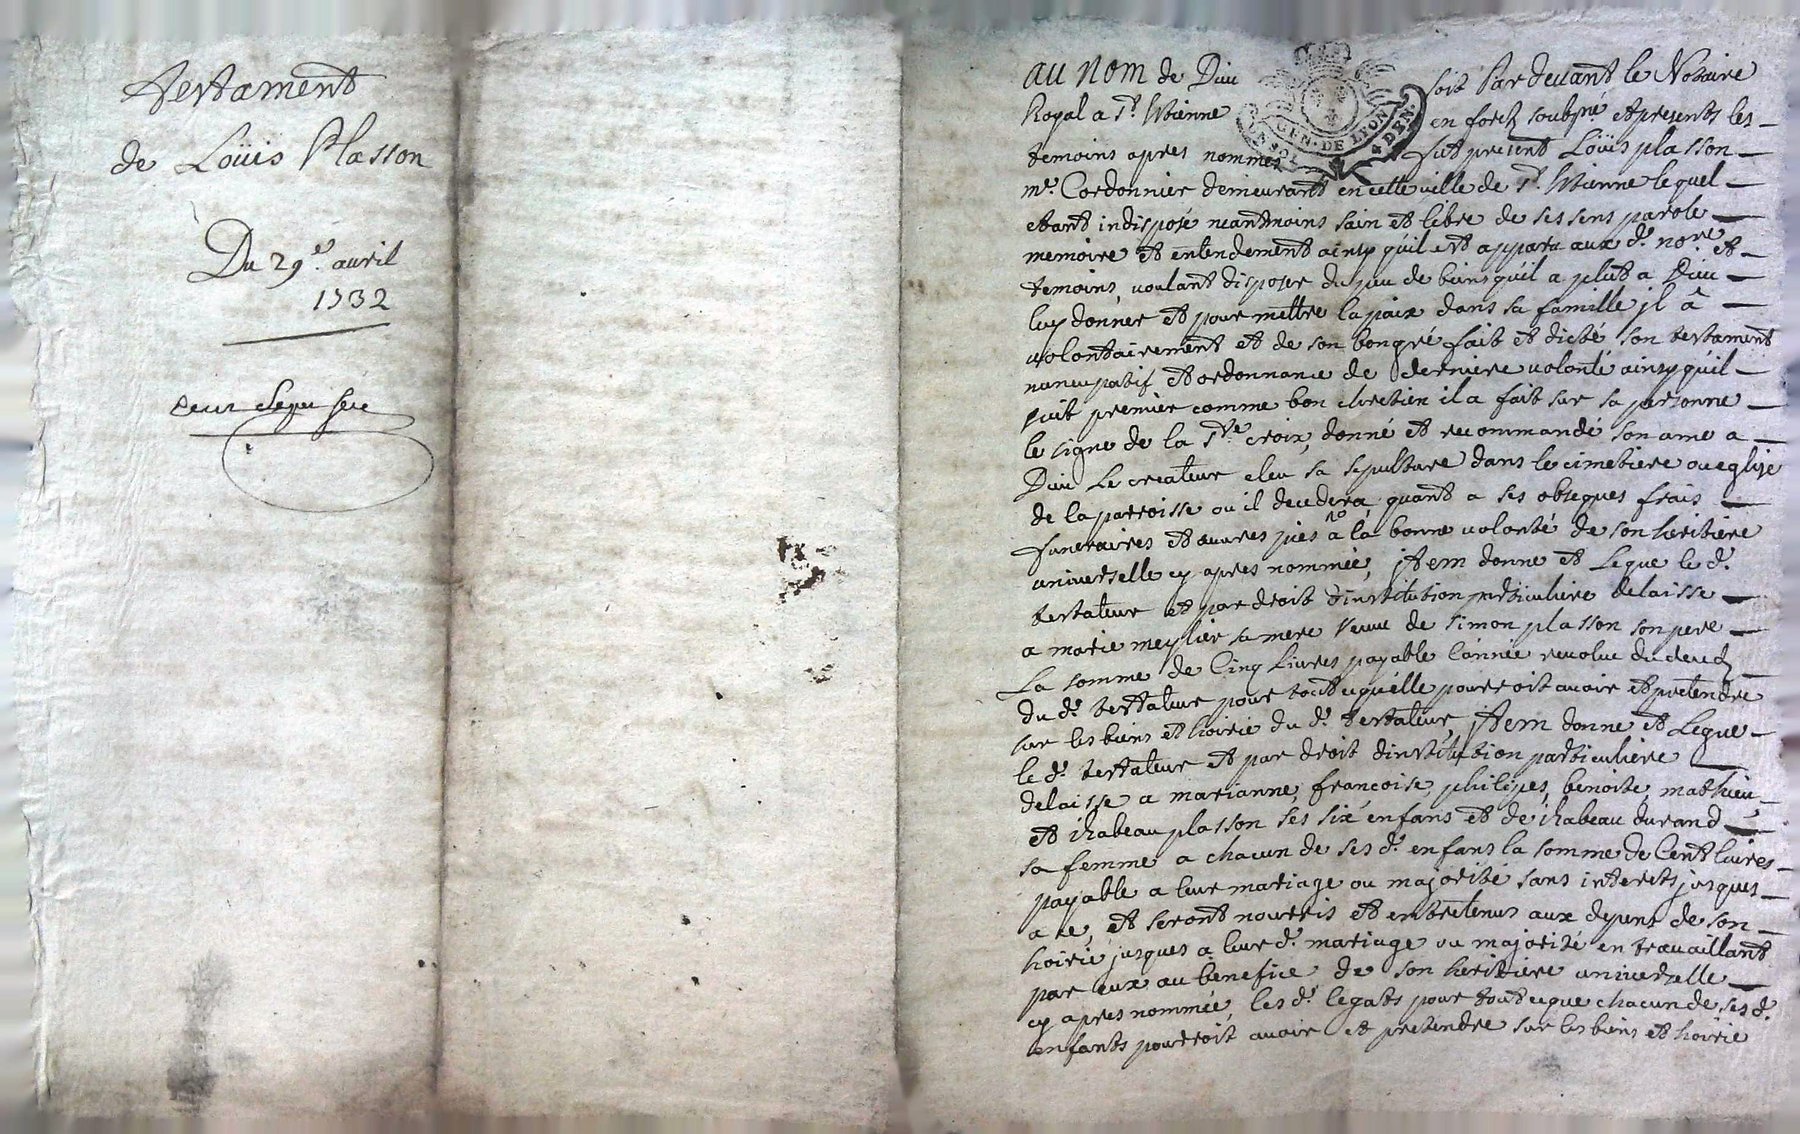 Testament
de Loüis Plasson
Du 29e. avril
1732
au nom de Dieu soit Par devant le Notaire
Royal a St. Etienne en forest soubsné et presents les
temoins apres nommes fut present Loüis plasson
me. Cordonnier demeurant en cette ville de St. Etienne lequel
etant indisposé neantmoins sain et libre de ses sens parole
memoire et entendement ainsy quil est apparu aux d. nore et
temoins, voulant disposer du peu de biens quil a plut a Dieu
luy donner et pour mettre la paix dans sa famille jl â
volontairement et de son bongré fait et dicté son testament
nuncupatif et ordonnance de derniere volonté ainsy quil
suit premier comme bon chretien il a fait sur sa personne
le signe de la Ste croix, donné et recommandé son ame a
Dieu Le createur eleu sa sepulture dans le cimetiere ou eglise
de la parroisse ou il decedera quant a ses obseques frais
funeraires et œuvres pies a la bonne volonté de son heritiere
universelle cy apres nommée, jtem donne et Legue le d.
testateur et par droit dinstitution particuliere delaisse
a marie meylier sa mere Veuve de simon plasson son pere
La somme de Cinq Livres payable lannée revolue du deced
du d. testateur pour tout ce quelle pourroit avoir et pretendre
sur les biens et hoirie du d. testateur, jtem donne et Legue
le d. testateur et par droit dinstitution particuliere
delaisse a marianne, francoise, philipes, benoite, mathieu,
et isabeau plasson ses six enfans et de isabeau durand
sa femme a chacun de ses d. enfans la somme de Cent livres
payable a leur mariage ou majorité sans interets jusques
a ce, et seront nourris et entretenus aux depens de son
hoirie jusques a leur d. mariage ou majorité en travaillant
par eux au benefice de son heritiere universelle
cy apres nommée, les d. legats pour tout ce que chacun de ses d.
enfants pourroit avoir et pretendre sur les biens et hoirie
GEN. DE LYON
4 DEN.